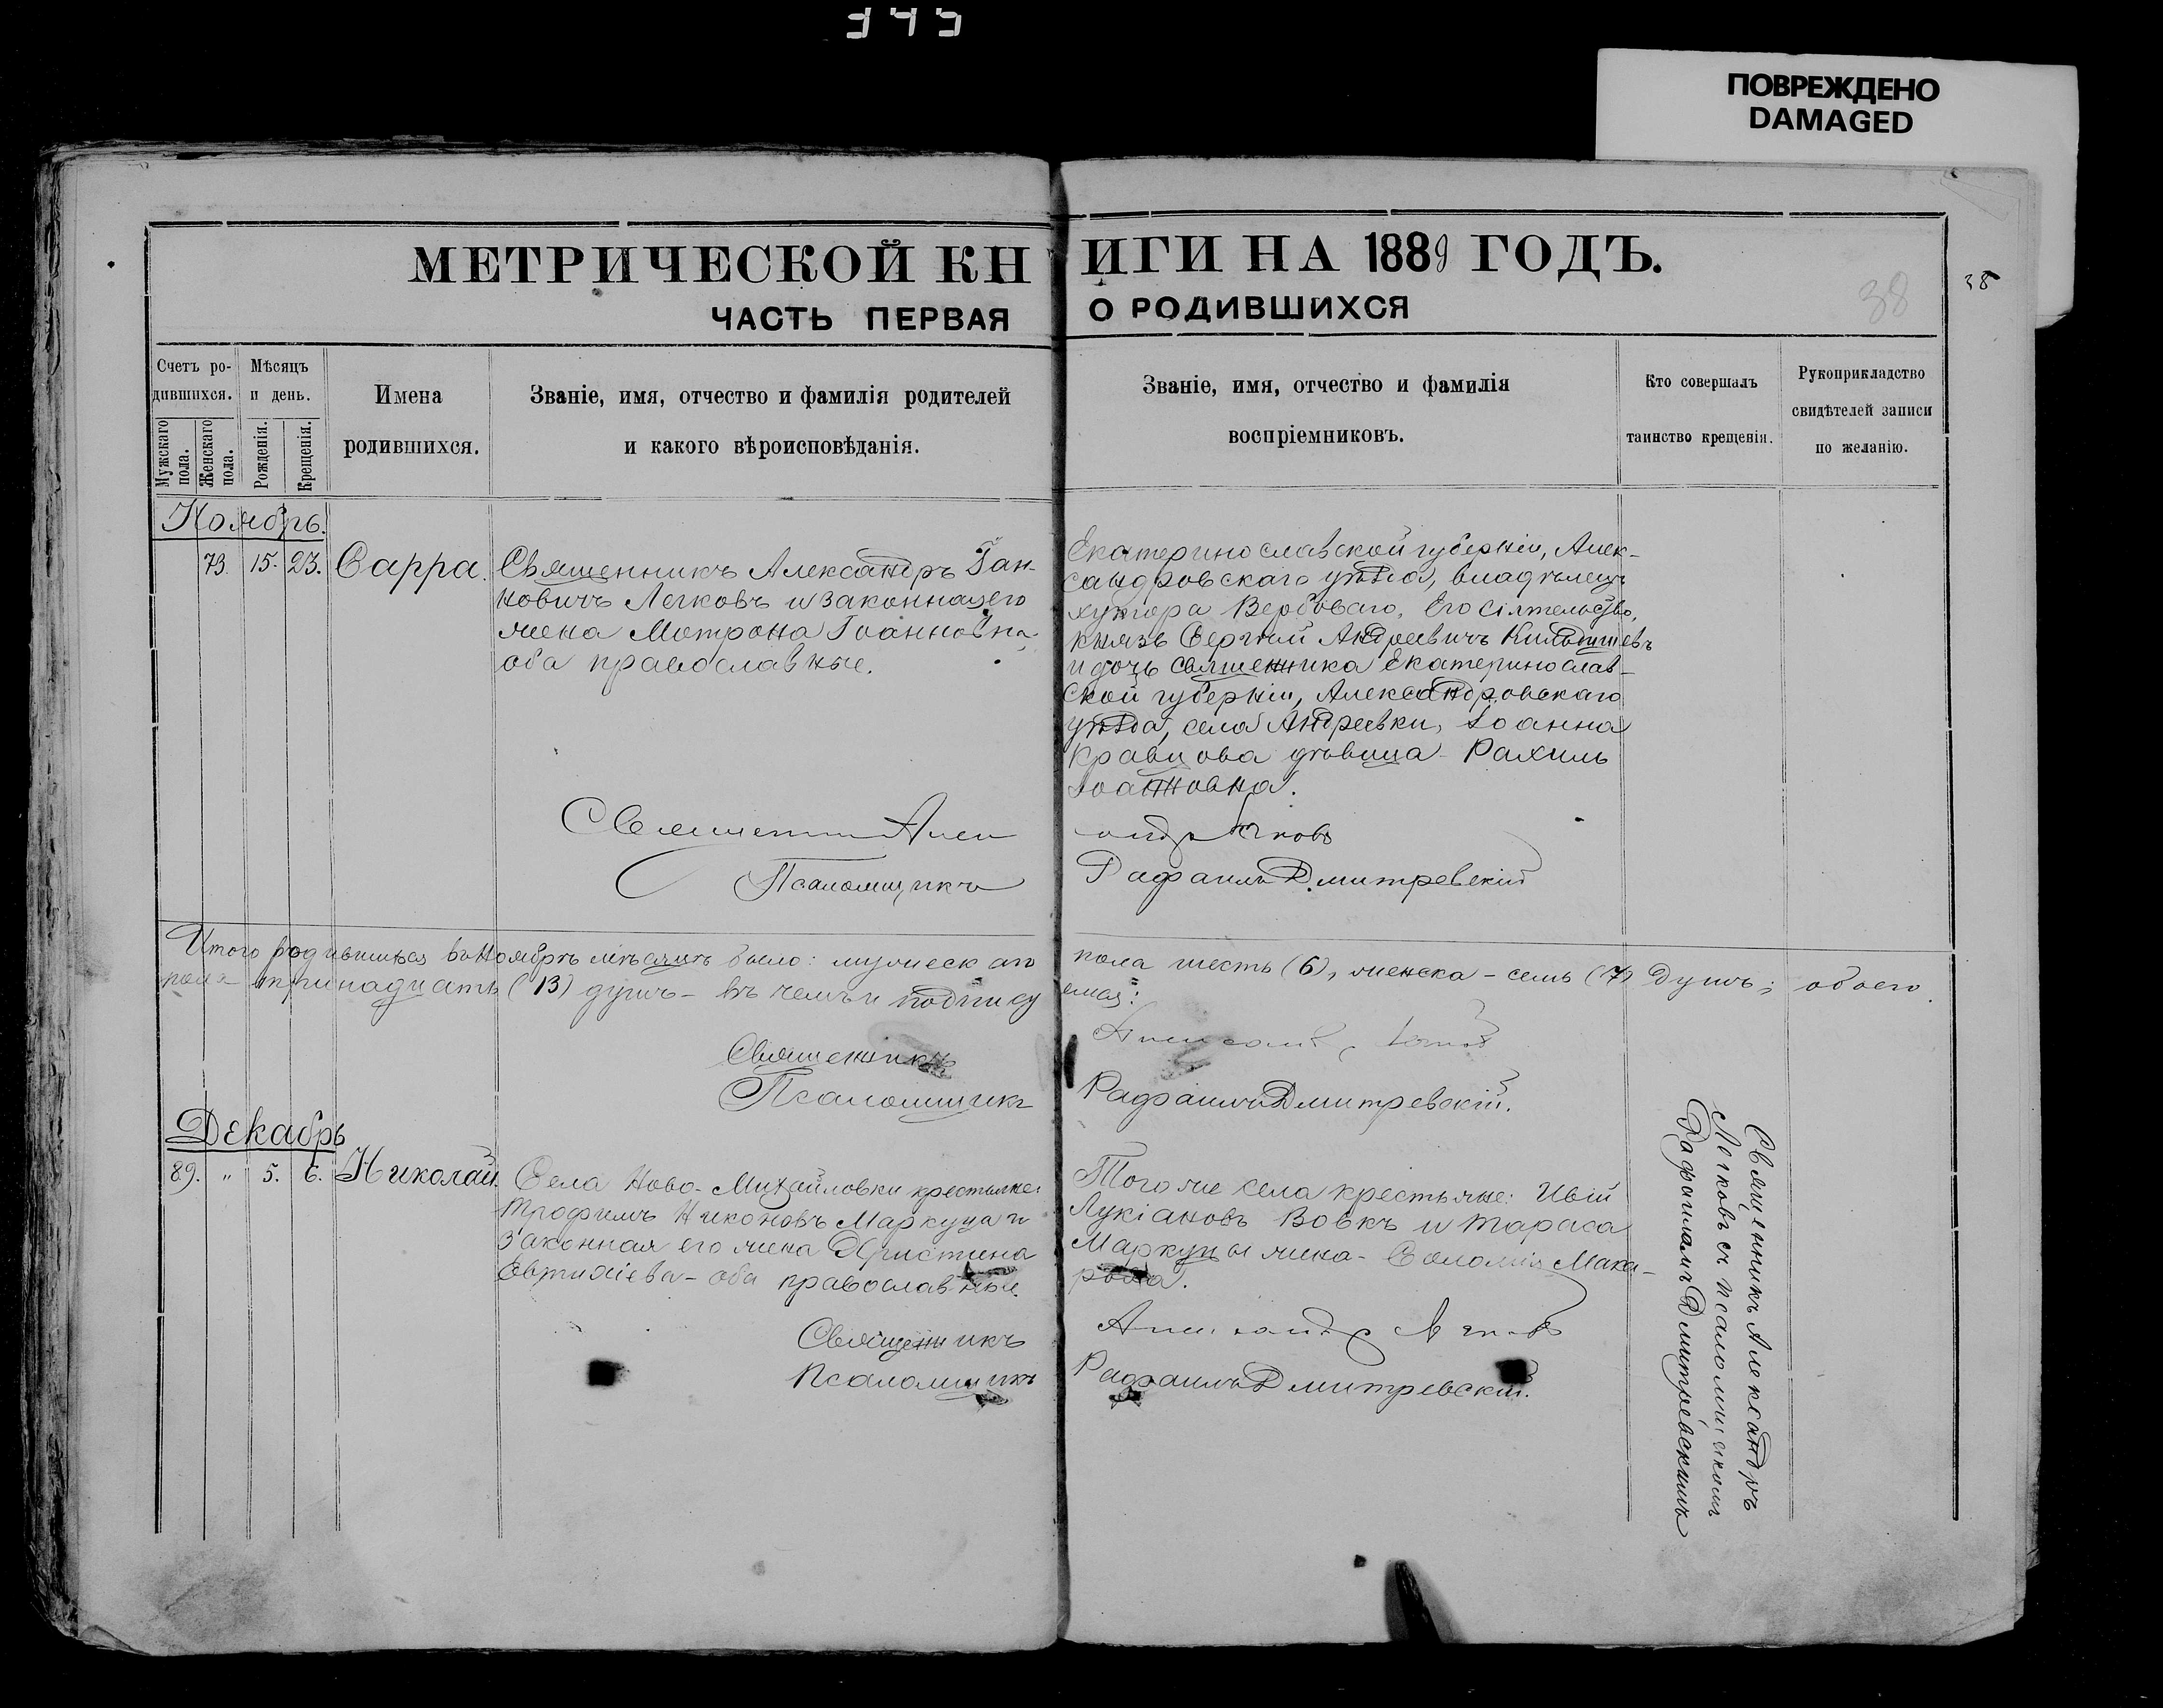 345
ПОВРЕЖДЕНО
DAMAGED
МЕТРИЧЕСКОЙ КНИГИ НА 1889 ГОДЪ.
38
38
ЧАСТЬ ПЕРВАЯ О РОДИВШИХСЯ
Счетъ родившихся.
Мужскаго пола.
Женскаго пола.
Мѣсяцъ и день.
Рожденія.
Крещенія.
Имена родившихся.
Званіе, имя, отчество и фамилія родителей
и какого вѣроисповѣданія.
Званіе, имя, отчество и фамилія
воспріемниковъ.
Кто совершалъ
таинство крещенія.
Рукоприкладство
свидѣтелей записи
по желанію.
Ноябрь.
73. 15. 23. Сарра.
Священникъ Александръ Іан-
новичъ Легковъ и законная его
жена Мотрона Іоанновна
оба православные.
Екатеринославской губерніи, Алек-
сандровскаго уѣзда, владѣлецъ
хутора Вербоваго, Его Сіятельство,
князь Сергій Андреевичъ Кильдишевъ
и дочь священника Екатеринослав-
ской губерніи, Александровскаго
уѣзда, села Андреевки, Іоанна
Кравцова дѣвица Рахиль
Іоанновна.
Священник Александр Легковъ
Псаломщикъ Рафаилъ Дмитревскій
Итого родившихся въ Ноябрѣ мѣсяцѣ было: мужескаго пола шесть (6), женска - семь (7) душъ; обоего
пола тринадцать (13) душъ - въ чемъ и подпису емся:
Священникъ
Псаломщикъ Рафаилъ Дмитревскій.
Декабрь
89. " 5. 6. Николай.
Села Ново-Михайловки крестьяне:
Трофимъ Никоновъ Маркуца и
законная его жена Христина
Евтихіева - оба православные.
Того же села крестьяне: Ивій
Лукіановъ Вовкъ и Тараса
Маркуцы жена - Соломія Мака-
рова.
Священникъ Александр Легковъ
Псаломщикъ Рафаилъ Дмитревскій.
Священникъ Александръ
Легковъ съ псаломщикомъ
Рафаиломъ Дмитревскимъ